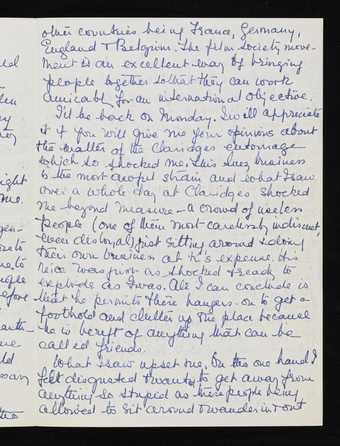 other countries being France, Germany,
England & Belgium. The film society move-
ment is an excellent way of bringing
people together so that they can work
amicably for an international objective.
I'll be back on Monday. I will appreciate
it if you will give me your opinions about
the matter of the Claridges entourage
which so shocked me. This Suez business
is the most awful strain and what I saw
over a whole day at Claridges shocked
me beyond measure – a crowd of useless
people (one of them most carelessly indiscreet,
even disloyal) just sitting around & doing
their own business at K's expense. His
niece was just as shocked & ready to
explode as I was. All I can conclude is
that he permits these hangers-on to get a
foothold and clutter up the place because
he is bereft of anything that can be
called friends.
What I saw upset me. On the one hand I
felt disgusted & wanted to get away from
anything so stupid as these people being
allowed to sit around & wander in & out